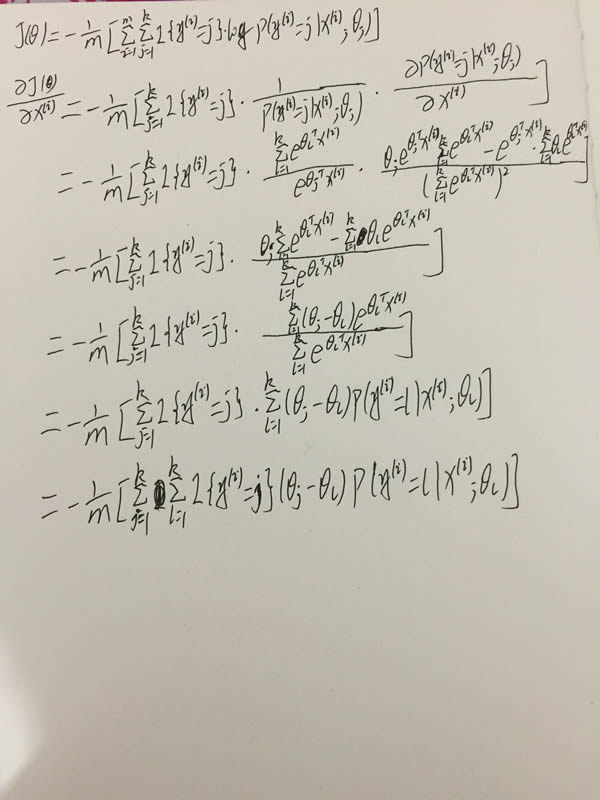 J(θ) = -1/m [ Σ_{i=1}^{m} Σ_{j=1}^{k} 1{y^{(i)}=j}·log P(y^{(i)}=j|x^{(i)};θ_j) ]
∂J(θ)/∂x^{(i)} = -1/m [ Σ_{j=1}^{k} 1{y^{(i)}=j} · 1/P(y^{(i)}=j|x^{(i)};θ_j) · ∂P(y^{(i)}=j|x^{(i)};θ_j)/∂x^{(i)} ]
= -1/m [ Σ_{j=1}^{k} 1{y^{(i)}=j} · (Σ_{l=1}^{k} e^{θ_l^T x^{(i)}})/(e^{θ_j^T x^{(i)}}) · (θ_j e^{θ_j^T x^{(i)}} Σ_{l=1}^{k} e^{θ_l^T x^{(i)}} - e^{θ_j^T x^{(i)}} · Σ_{l=1}^{k} θ_l e^{θ_l^T x^{(i)}})/(Σ_{l=1}^{k} e^{θ_l^T x^{(i)}})^2 ]
= -1/m [ Σ_{j=1}^{k} 1{y^{(i)}=j} · (θ_j Σ_{l=1}^{k} e^{θ_l^T x^{(i)}} - Σ_{l=1}^{k} θ_l e^{θ_l^T x^{(i)}})/(Σ_{l=1}^{k} e^{θ_l^T x^{(i)}}) ]
= -1/m [ Σ_{j=1}^{k} 1{y^{(i)}=j} · (Σ_{l=1}^{k} (θ_j-θ_l) e^{θ_l^T x^{(i)}})/(Σ_{l=1}^{k} e^{θ_l^T x^{(i)}}) ]
= -1/m [ Σ_{j=1}^{k} 1{y^{(i)}=j} · Σ_{l=1}^{k} (θ_j-θ_l) P(y^{(i)}=l|x^{(i)};θ_l) ]
= -1/m [ Σ_{j=1}^{k} Σ_{l=1}^{k} 1{y^{(i)}=j} (θ_j-θ_l) P(y^{(i)}=l|x^{(i)};θ_l) ]